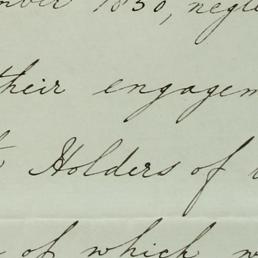 1830, negle
their engagem
Holders of
of which